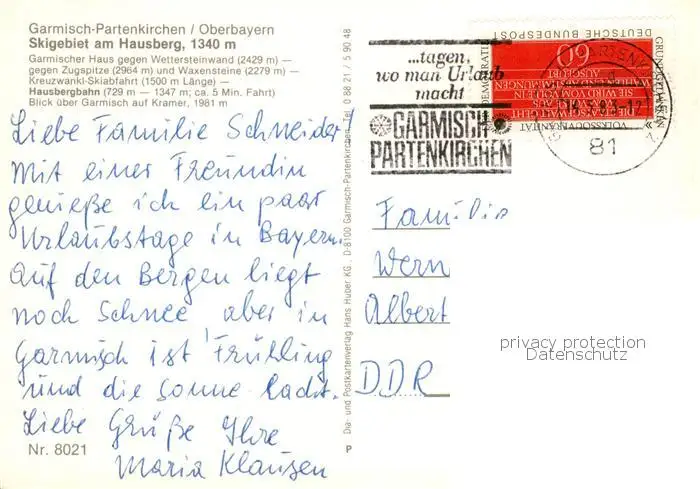 Garmisch-Partenkirchen / Oberbayern
Skigebiet am Hausberg, 1340 m
Garmischer Haus gegen Wettersteinwand (2429 m) —
gegen Zugspitze (2964 m) und Waxensteine (2279 m) —
Kreuzwankl-Skiabfahrt (1500 m Länge) —
Hausbergbahn (729 m — 1347 m; ca. 5 Min. Fahrt)
Blick über Garmisch auf Kramer, 1981 m
Liebe Familie Schneider!
Mit einer Freundin
genieße ich ein paar
Urlaubstage in Bayern.
Auf den Bergen liegt
noch Schnee, aber in
Garmisch ist Frühling
und die Sonne lacht.
Liebe Grüße Ihre
Maria Klausen
Nr. 8021
P
Dia- und Postkartenverlag Hans Huber KG, D-8100 Garmisch-Partenkirchen Tel. 0 88 21 / 5 90 48
...tagen,
wo man Urlaub
macht
GARMISCH
PARTENKIRCHEN
DEUTSCHE BUNDESPOST
60
VOLKSSOUVERÄNITÄT
81
Familie
Wern
Albert
DDR
privacy protection
Datenschutz